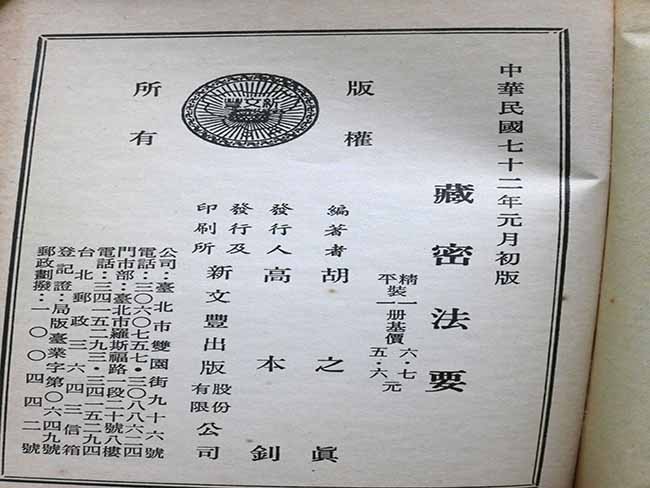 中華民國七十二年元月初版
藏密法要
精
平裝一册基價
六・七
五・六元
編著者 胡之眞
發行人 高本釗
發行及
印刷所
新文豐出版股份有限公司
公司:臺北市雙園街九十六號
電話:三〇六〇七五七・三〇八八六二四
門市部:臺北市羅斯福路一段二十號八樓
電話:三四一五二九三・三四一五二九四
台北郵政三六四三信箱
登記證:局版臺業字第〇六四九號
郵政劃撥:一〇〇四四二號
版權
所有
新文豐